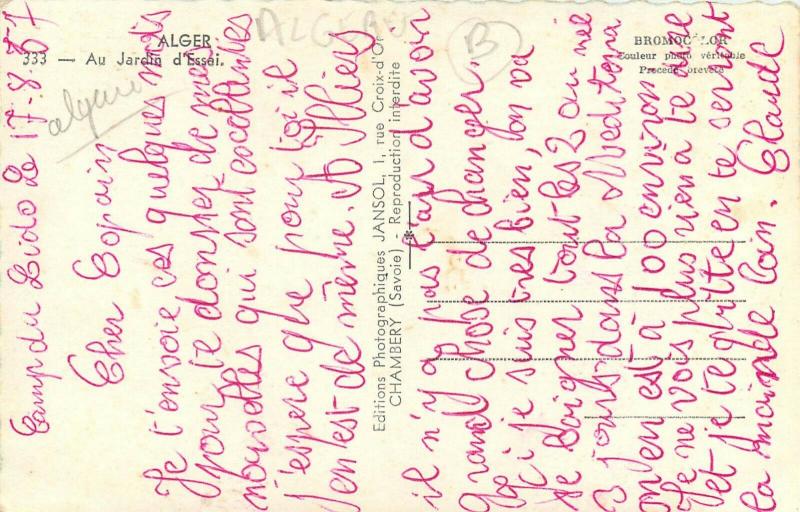 ALGER
333 — Au Jardin d'Essai.
ALGERIE
B
algerie
BROMOCOLOR
Couleur photo véritable
Procédé breveté
Editions Photographiques JANSOL, 1, rue Croix-d'Or
CHAMBERY (Savoie) - Reproduction interdite
Camp du Lido Le 17-8-57
Cher Copain
Je t'envoie ces quelques mots
pour te donner de mes
nouvelles qui sont excellentes
j'espère que pour toi il
en est de même. A Illiers
il n'y a pas l'air d'avoir
grand chose de changer.
Ici je suis très bien, on va
se baigner tout les 2 ou
3 jours dans la Mediterra
on en est à 100 environ
Je ne vois plus rien à te dire
et je te quitte en te serrant
la main de loin. Claude